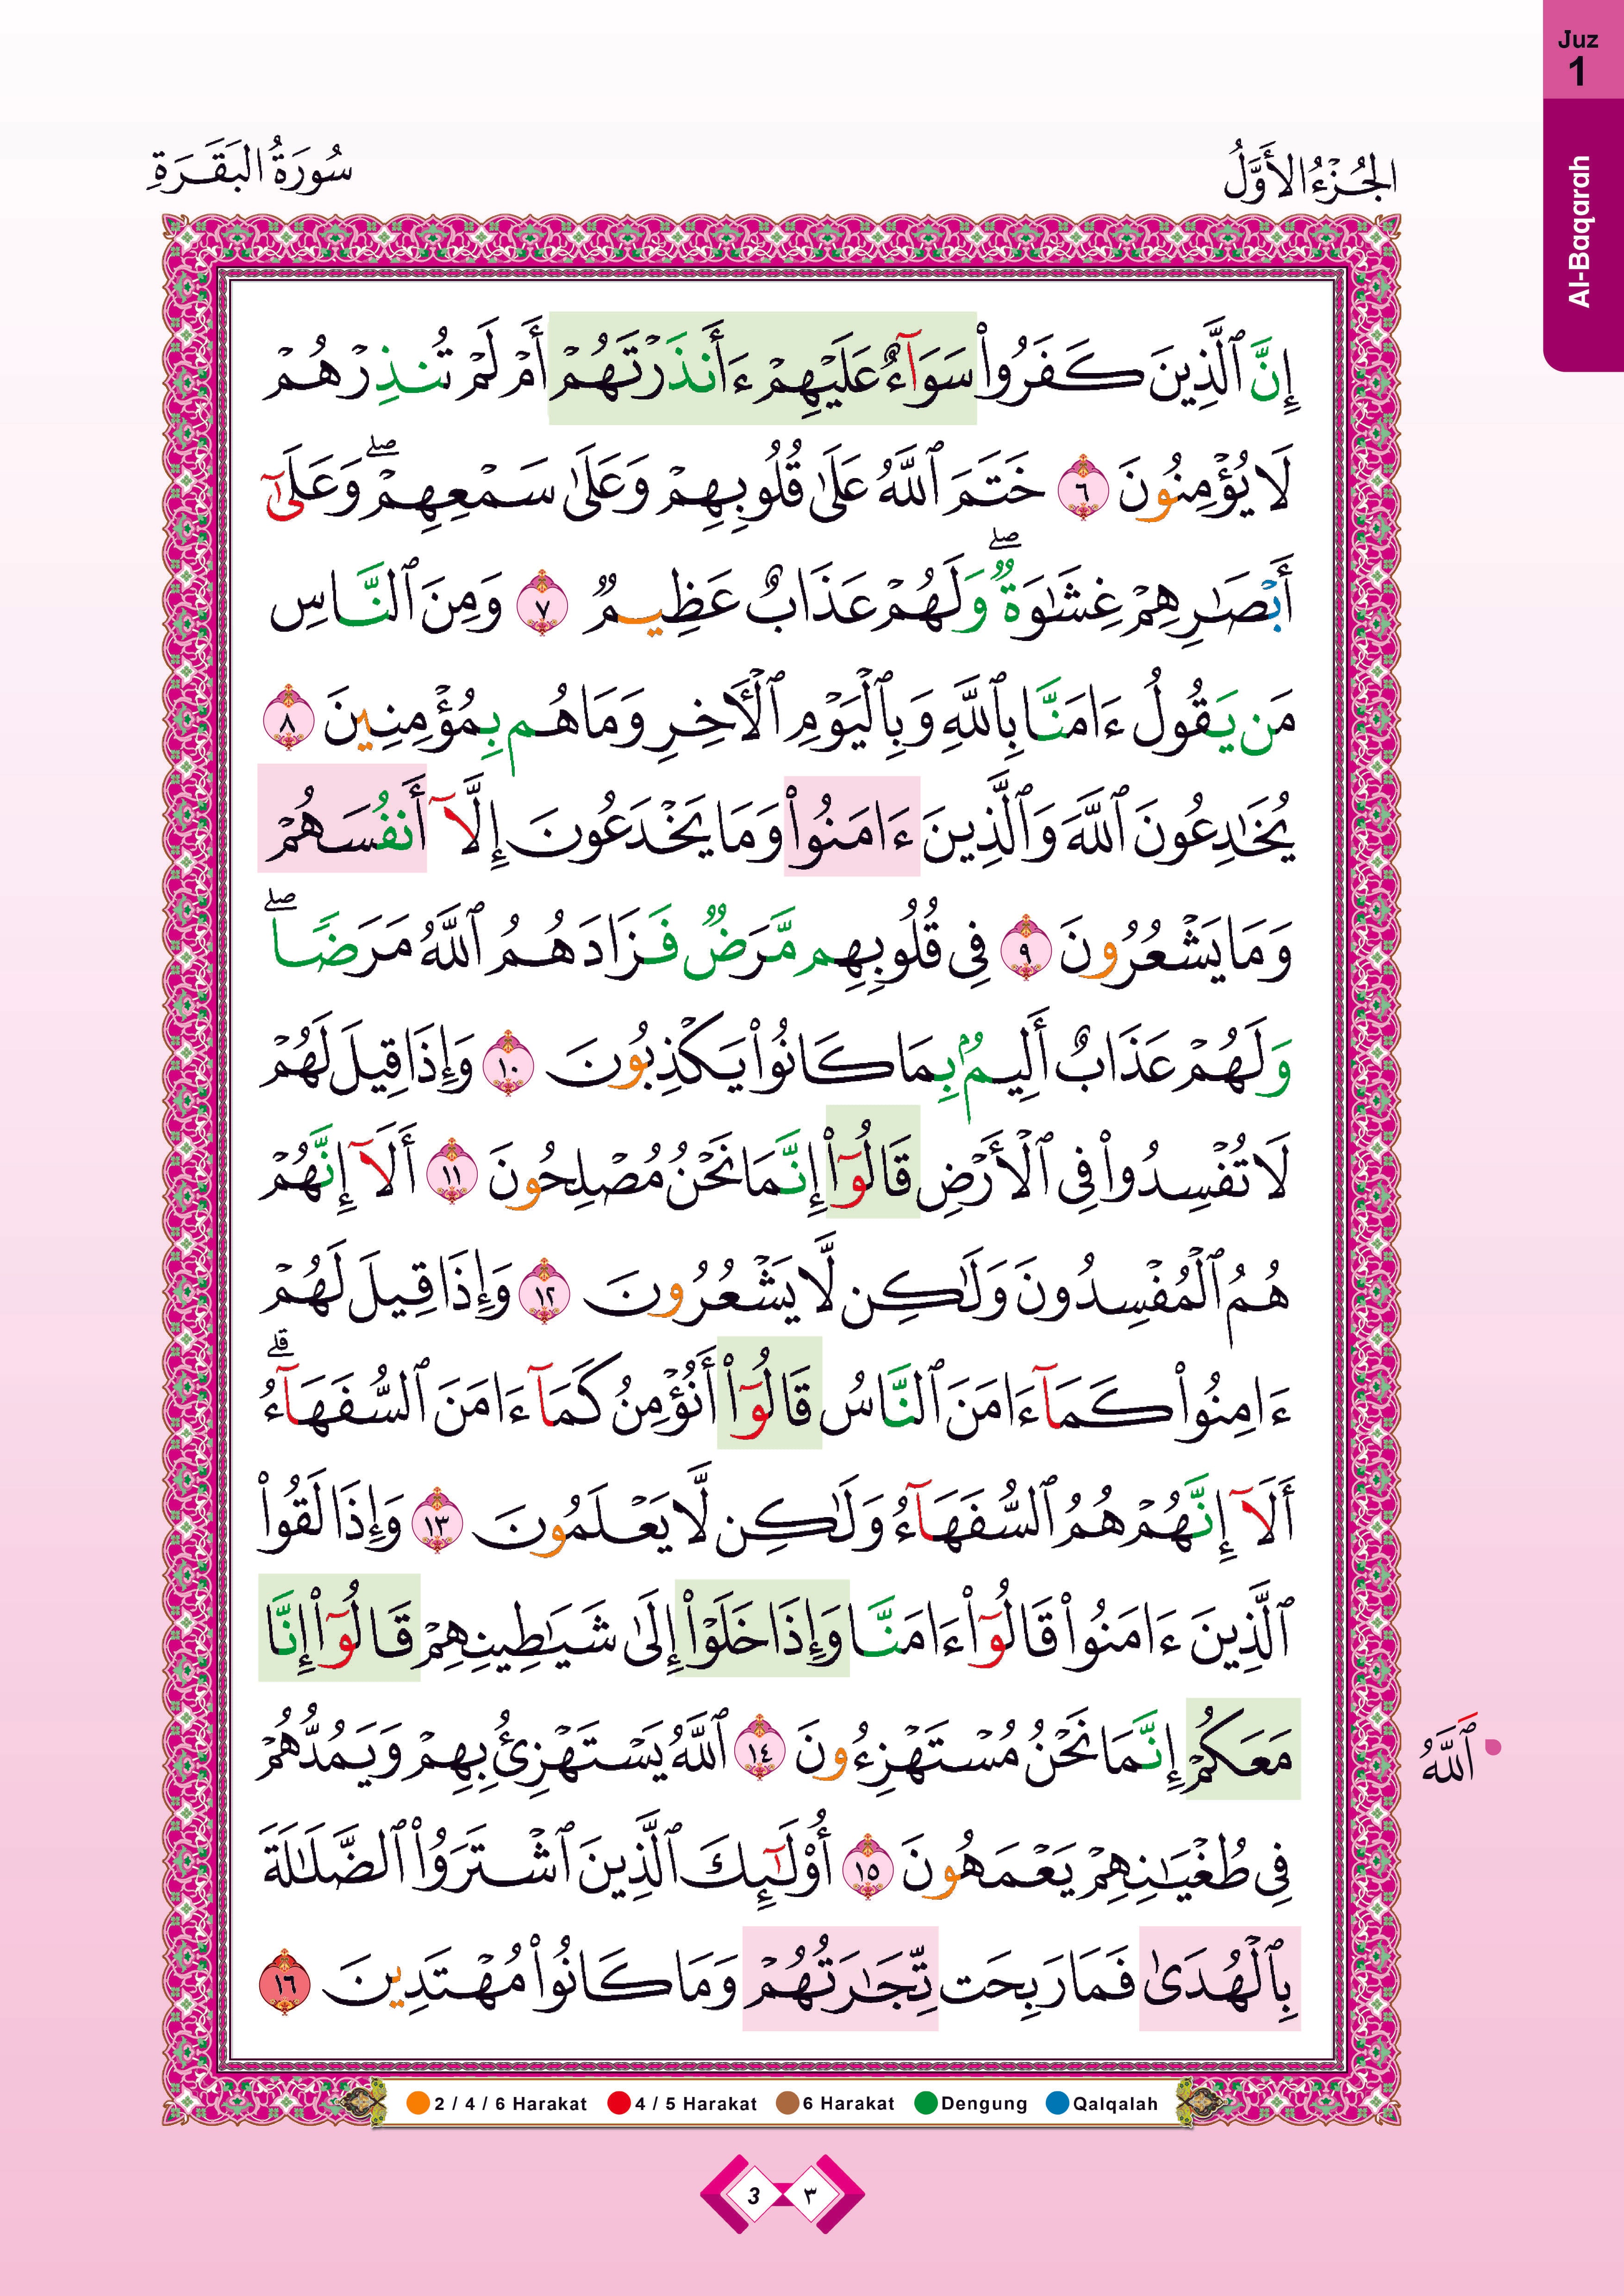 Juz
1
Al-Baqarah
الجُزْءُ الأَوَّلُ
سُورَةُ البَقَرَةِ
إِنَّ ٱلَّذِينَ كَفَرُوا۟ سَوَآءٌ عَلَيْهِمْ ءَأَنذَرْتَهُمْ أَمْ لَمْ تُنذِرْهُمْ
لَا يُؤْمِنُونَ ٦ خَتَمَ ٱللَّهُ عَلَىٰ قُلُوبِهِمْ وَعَلَىٰ سَمْعِهِمْ ۖ وَعَلَىٰٓ
أَبْصَٰرِهِمْ غِشَٰوَةٌ ۖ وَلَهُمْ عَذَابٌ عَظِيمٌ ٧ وَمِنَ ٱلنَّاسِ
مَن يَقُولُ ءَامَنَّا بِٱللَّهِ وَبِٱلْيَوْمِ ٱلْأَخِرِ وَمَا هُم بِمُؤْمِنِينَ ٨
يُخَٰدِعُونَ ٱللَّهَ وَٱلَّذِينَ ءَامَنُوا۟ وَمَا يَخْدَعُونَ إِلَّآ أَنفُسَهُمْ
وَمَا يَشْعُرُونَ ٩ فِى قُلُوبِهِم مَّرَضٌ فَزَادَهُمُ ٱللَّهُ مَرَضًا ۖ
وَلَهُمْ عَذَابٌ أَلِيمٌۢ بِمَا كَانُوا۟ يَكْذِبُونَ ١٠ وَإِذَا قِيلَ لَهُمْ
لَا تُفْسِدُوا۟ فِى ٱلْأَرْضِ قَالُوٓا۟ إِنَّمَا نَحْنُ مُصْلِحُونَ ١١ أَلَآ إِنَّهُمْ
هُمُ ٱلْمُفْسِدُونَ وَلَٰكِن لَّا يَشْعُرُونَ ١٢ وَإِذَا قِيلَ لَهُمْ
ءَامِنُوا۟ كَمَآ ءَامَنَ ٱلنَّاسُ قَالُوٓا۟ أَنُؤْمِنُ كَمَآ ءَامَنَ ٱلسُّفَهَآءُ ۗ
أَلَآ إِنَّهُمْ هُمُ ٱلسُّفَهَآءُ وَلَٰكِن لَّا يَعْلَمُونَ ١٣ وَإِذَا لَقُوا۟
ٱلَّذِينَ ءَامَنُوا۟ قَالُوٓا۟ ءَامَنَّا وَإِذَا خَلَوْا۟ إِلَىٰ شَيَٰطِينِهِمْ قَالُوٓا۟ إِنَّا
مَعَكُمْ إِنَّمَا نَحْنُ مُسْتَهْزِءُونَ ١٤ ٱللَّهُ يَسْتَهْزِئُ بِهِمْ وَيَمُدُّهُمْ
أَللَّهُ
فِى طُغْيَٰنِهِمْ يَعْمَهُونَ ١٥ أُو۟لَٰٓئِكَ ٱلَّذِينَ ٱشْتَرَوُا۟ ٱلضَّلَٰلَةَ
بِٱلْهُدَىٰ فَمَا رَبِحَت تِّجَٰرَتُهُمْ وَمَا كَانُوا۟ مُهْتَدِينَ ١٦
2 / 4 / 6 Harakat 4 / 5 Harakat 6 Harakat Dengung Qalqalah
3 ٣